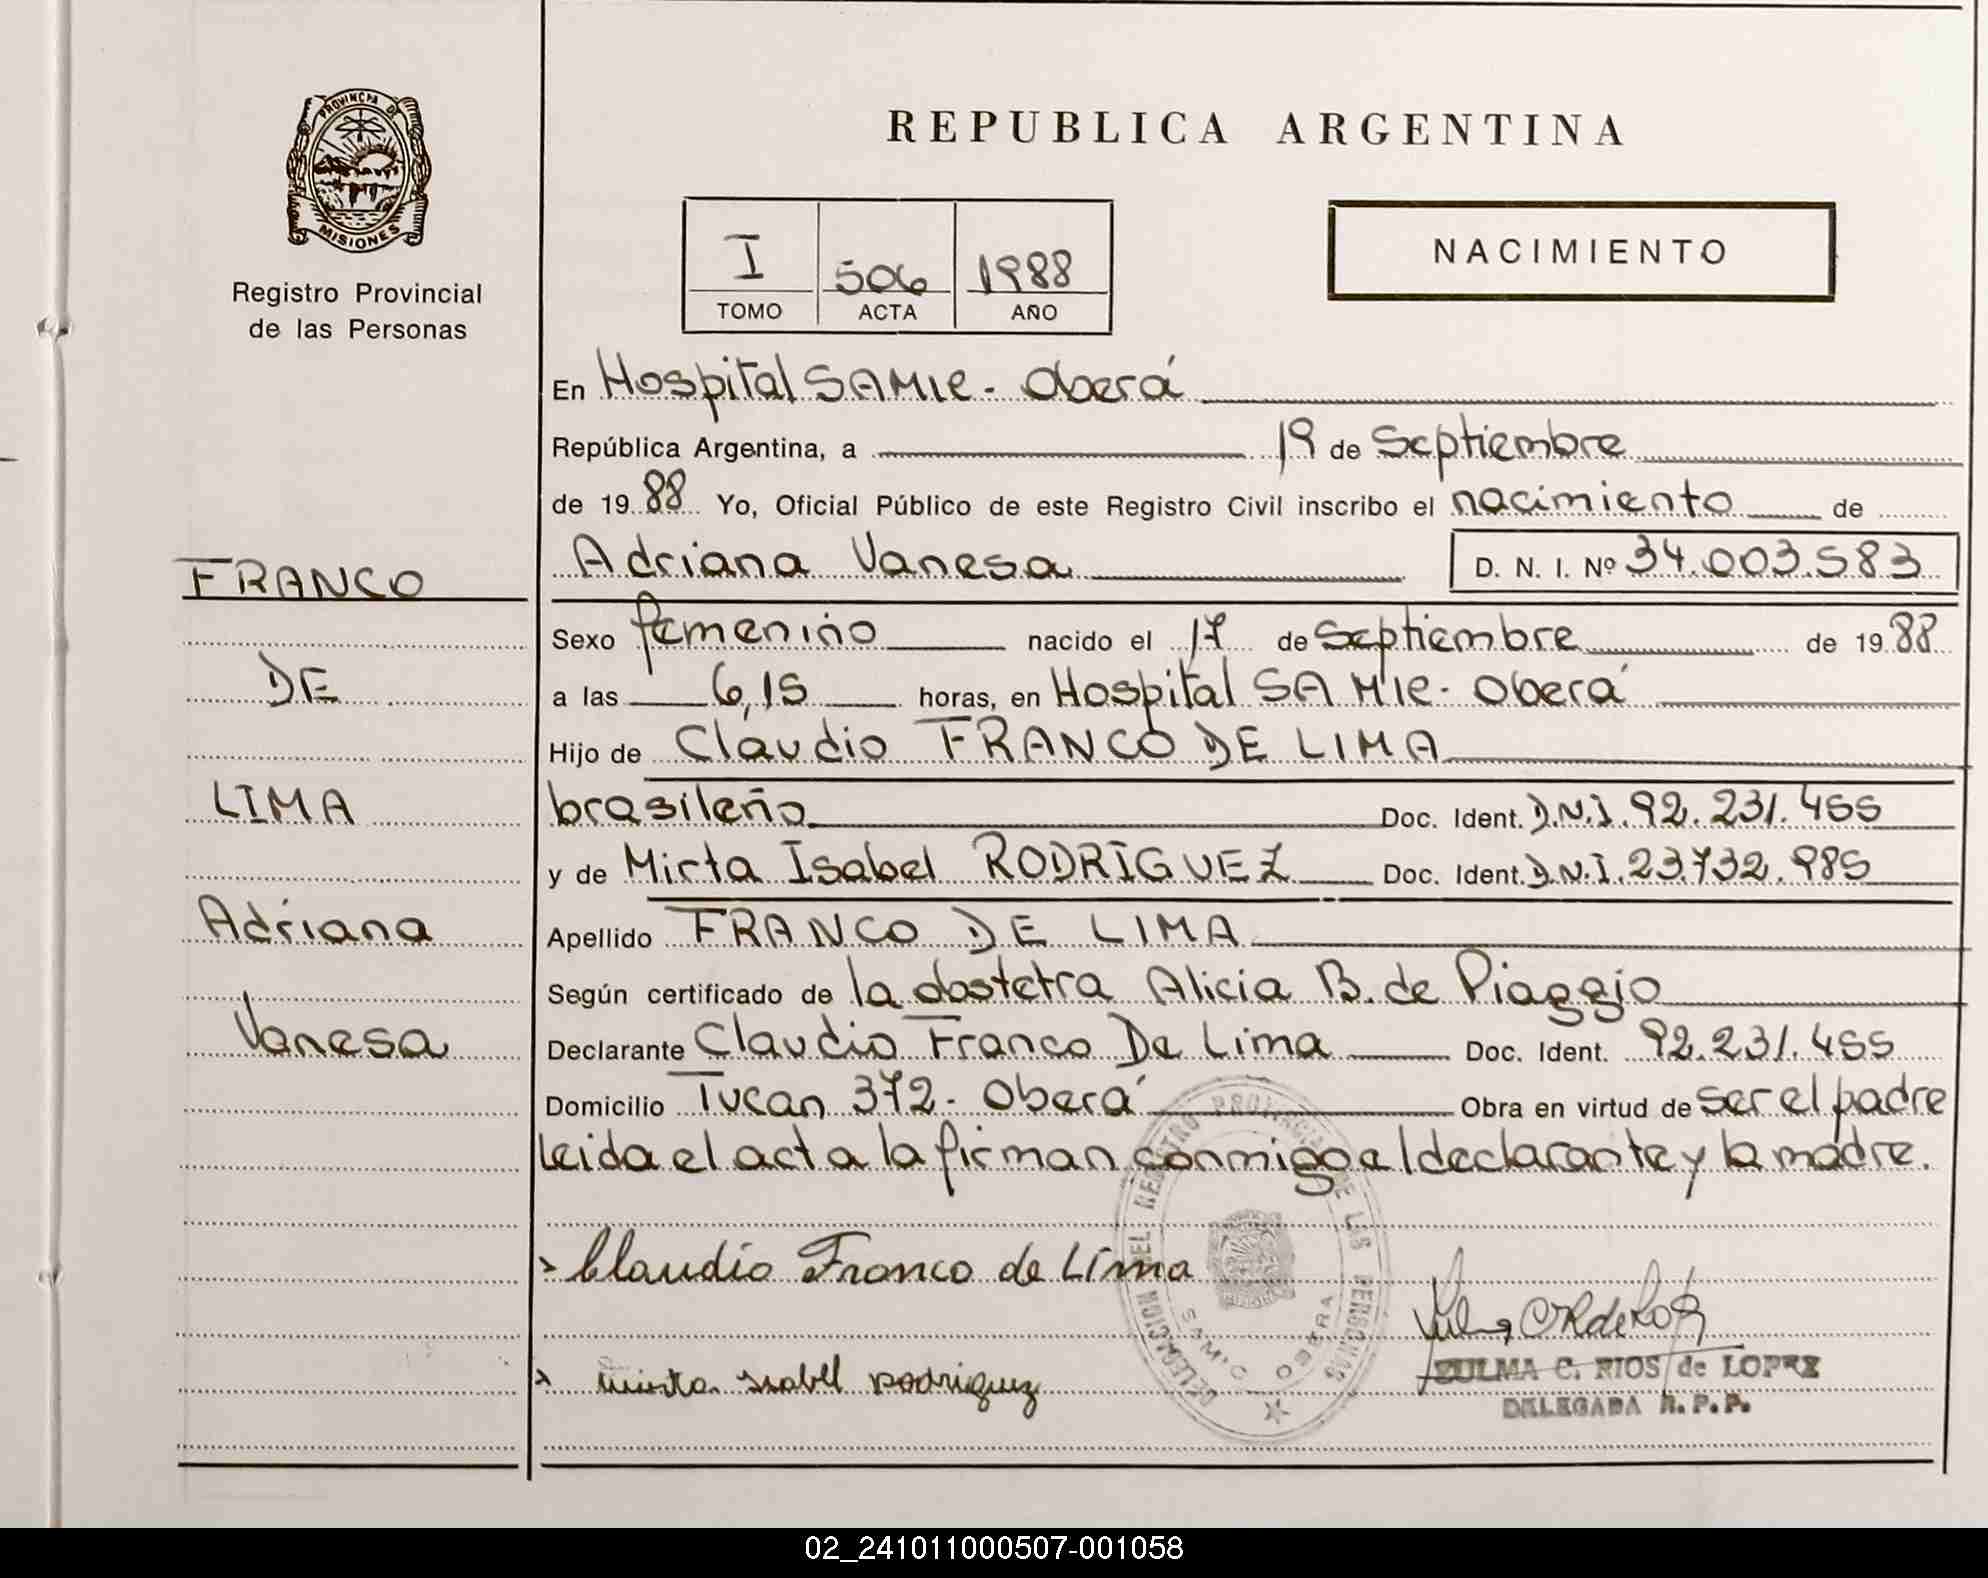 PROVINCIA DE
MISIONES
Registro Provincial
de las Personas
REPUBLICA ARGENTINA
I 506 1988
TOMO ACTA AÑO
NACIMIENTO
En Hospital SAMIC - Oberá
República Argentina, a 19 de Septiembre
de 1988 Yo, Oficial Público de este Registro Civil inscribo el nacimiento de
Adriana Vanesa D. N. I. Nº 34.003.583
Sexo femenino nacido el 17 de Septiembre de 1988
a las 6,15 horas, en Hospital SAMIC - Oberá
Hijo de Claudio FRANCO DE LIMA
brasileño Doc. Ident. D.N.I. 92.231.455
y de Mirta Isabel RODRIGUEZ Doc. Ident. D.N.I. 23.732.985
Apellido FRANCO DE LIMA
Según certificado de la obstetra Alicia B. de Piaggio
Declarante Claudio Franco De Lima Doc. Ident. 92.231.455
Domicilio Tucan 372 - Oberá Obra en virtud de ser el padre
leida el acta la firman conmigo el declarante y la madre.
FRANCO
DE
LIMA
Adriana
Vanesa
Claudio Franco de Lima
mirta isabel rodriguez
DELEGACION DEL REGISTRO PROVINCIAL DE LAS PERSONAS
SAMIC OBERA
ZULMA C. RIOS de LOPEZ
DELEGADA R.P.P.
02_241011000507-001058